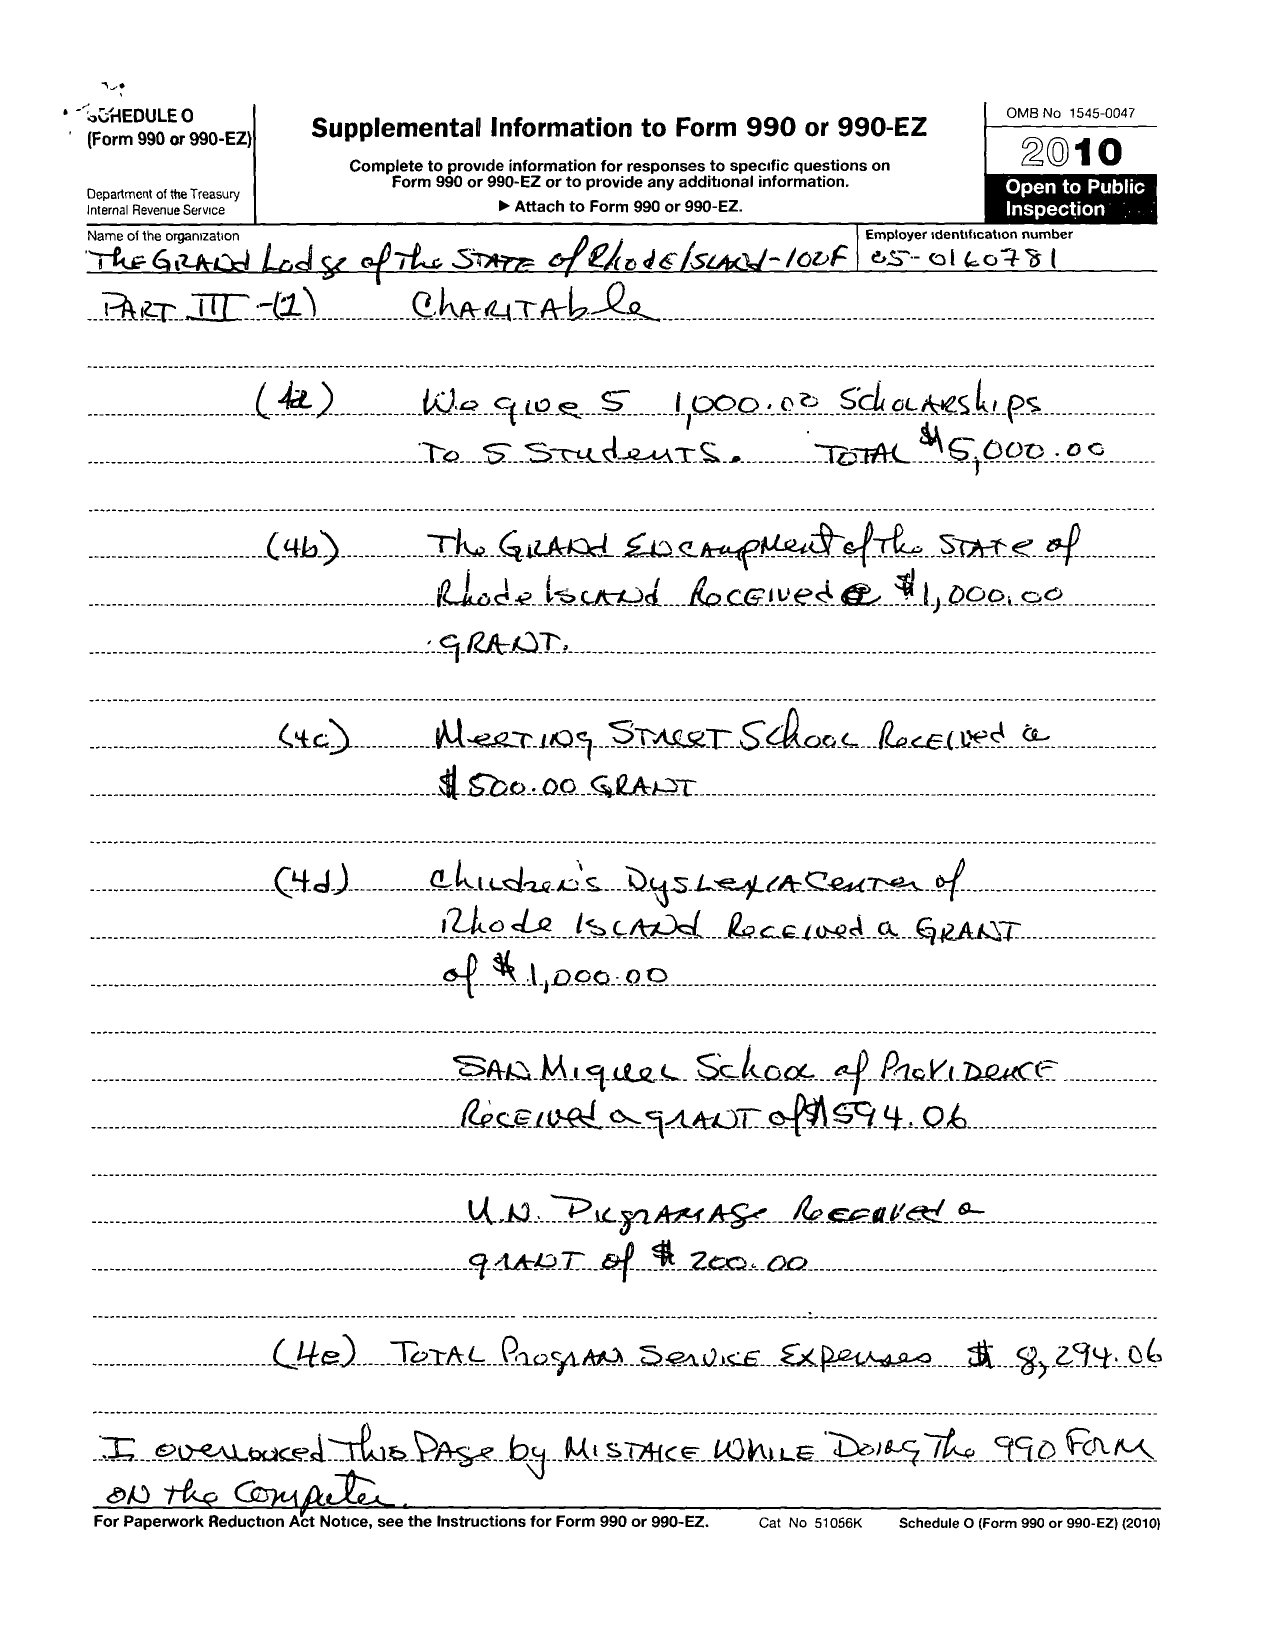 SCHEDULE O
(Form 990 or 990-EZ)
Department of the Treasury
Internal Revenue Service
Supplemental Information to Form 990 or 990-EZ
Complete to provide information for responses to specific questions on
Form 990 or 990-EZ or to provide any additional information.
▶ Attach to Form 990 or 990-EZ.
OMB No 1545-0047
2010
Open to Public
Inspection
Name of the organization
The GRAND Lodge of The STATE of Rhode ISLAND-IOOF
Employer identification number
05-0160781
PART III -(1) CHARITAble
(4a) We give 5 1,000.00 ScholARships
To 5 STudeNTS. TOTAL $5,000.00
(4b) The GRAND ENCAmpMent of The STATE of
Rhode ISLAND ReCEIVed a $1,000.00
GRANT.
(4c) MeeTINg STReeT School ReCEIVed a
$500.00 GRANT
(4d) Children's DysLexIA CenTer of
Rhode ISLAND ReCEIved a GRANT
of $1,000.00
SAN MigueL School of PROVIDeNCE
ReCEIVed a gRANT of $594.06
U.N. PILgRAMAge ReCEIVed a
gRANT of $200.00
(4e) TOTAL PRogRAM SeRVICE Expenses $ 8,294.06
I oveRLooked This PAge by MISTAKE WHILE DOINg The 990 FoRM
ON the Computer.
For Paperwork Reduction Act Notice, see the Instructions for Form 990 or 990-EZ.
Cat No 51056K
Schedule O (Form 990 or 990-EZ) (2010)